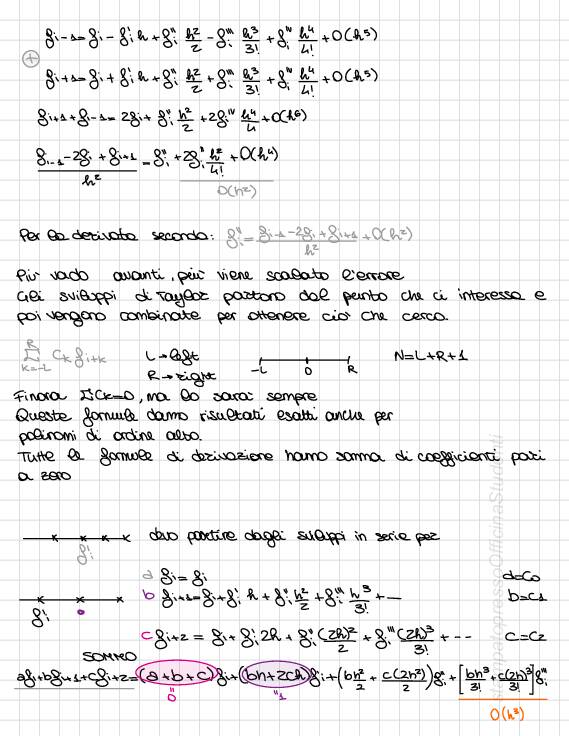 fi-1 = fi - fi' h + fi'' h²/2 - fi''' h³/3! + fi^IV h⁴/4! + O(h⁵)
+
fi+1 = fi + fi' h + fi'' h²/2 + fi''' h³/3! + fi^IV h⁴/4! + O(h⁵)
fi+1 + fi-1 = 2fi + fi'' h²/2 + 2fi^IV h⁴/4 + O(h⁶)
(fi-1 - 2fi + fi+1)/h² = fi'' + 2fi'' h²/4! + O(h⁴)
O(h²)
Per la derivata seconda: fi'' = (fi-1 - 2fi + fi+1)/h² + O(h²)
Piu' vado avanti, piu' viene scalato l'errore
Gli sviluppi di Taylor partono dal punto che ci interessa e
poi vengono combinate per ottenere cio' che cerco.
R Σ K=-L Ck fi+k L → left -L 0 R N=L+R+1
R → right
Finora ΣCk=0, ma lo sara' sempre
Queste formule danno risultati esatti anche per
polinomi di ordine alto.
Tutte le formule di derivazione hanno somma di coefficienti pari
a zero
devo partire dagli sviluppi in serie per
fi'
a fi = fi a=C0
b fi+1 = fi + fi' h + fi'' h²/2 + fi''' h³/3! + --- b=C1
fi'
c fi+2 = fi + fi' 2h + fi'' (2h)²/2 + fi''' (2h)³/3! + --- c=C2
SOMMO
afi + bfi+1 + cfi+2 = (a+b+c)fi + (bh+2ch)fi + (bh²/2 + c(2h²)/2)fi'' + [bh³/3! + c(2h)³/3!]fi'''
" 0 " 1
O(h³)
stampato presso Officina Studenti